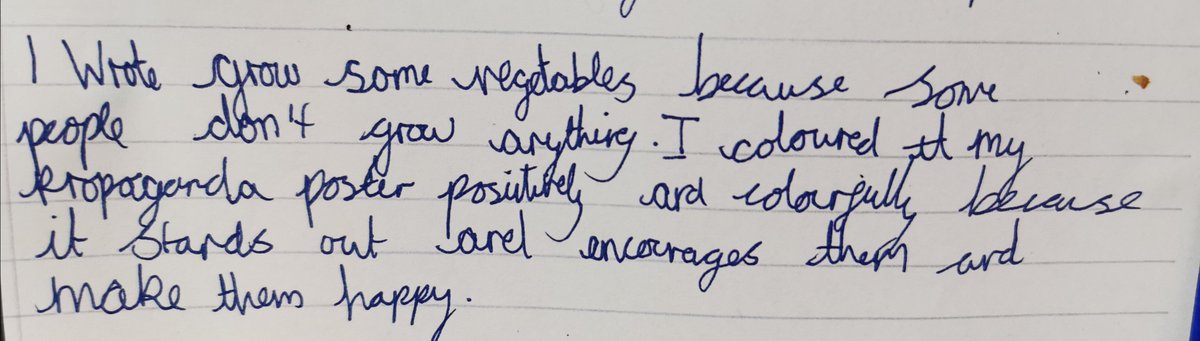 I Wrote grow some vegetables because some
people don't grow anything. I coloured my
Propaganda poster positively and colourfully because
it stands out and encourages them and
make them happy.